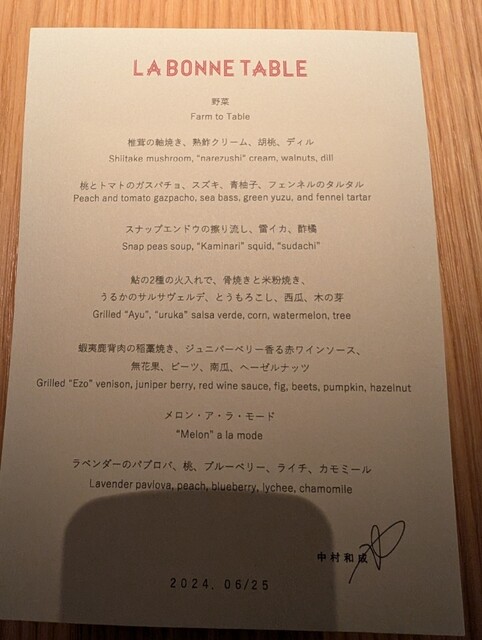 LA BONNE TABLE
野菜
Farm to Table
椎茸の軸焼き、熟鮓クリーム、胡桃、ディル
Shiitake mushroom, "narezushi" cream, walnuts, dill
桃とトマトのガスパチョ、スズキ、青柚子、フェンネルのタルタル
Peach and tomato gazpacho, sea bass, green yuzu, and fennel tartar
スナップエンドウの擦り流し、雷イカ、酢橘
Snap peas soup, "Kaminari" squid, "sudachi"
鮎の2種の火入れで、骨焼きと米粉焼き、
うるかのサルサヴェルデ、とうもろこし、西瓜、木の芽
Grilled "Ayu", "uruka" salsa verde, corn, watermelon, tree
蝦夷鹿背肉の稲藁焼き、ジュニパーベリー香る赤ワインソース、
無花果、ビーツ、南瓜、ヘーゼルナッツ
Grilled "Ezo" venison, juniper berry, red wine sauce, fig, beets, pumpkin, hazelnut
メロン・ア・ラ・モード
"Melon" a la mode
ラベンダーのパブロバ、桃、ブルーベリー、ライチ、カモミール
Lavender pavlova, peach, blueberry, lychee, chamomile
中村和成
2024. 06/25